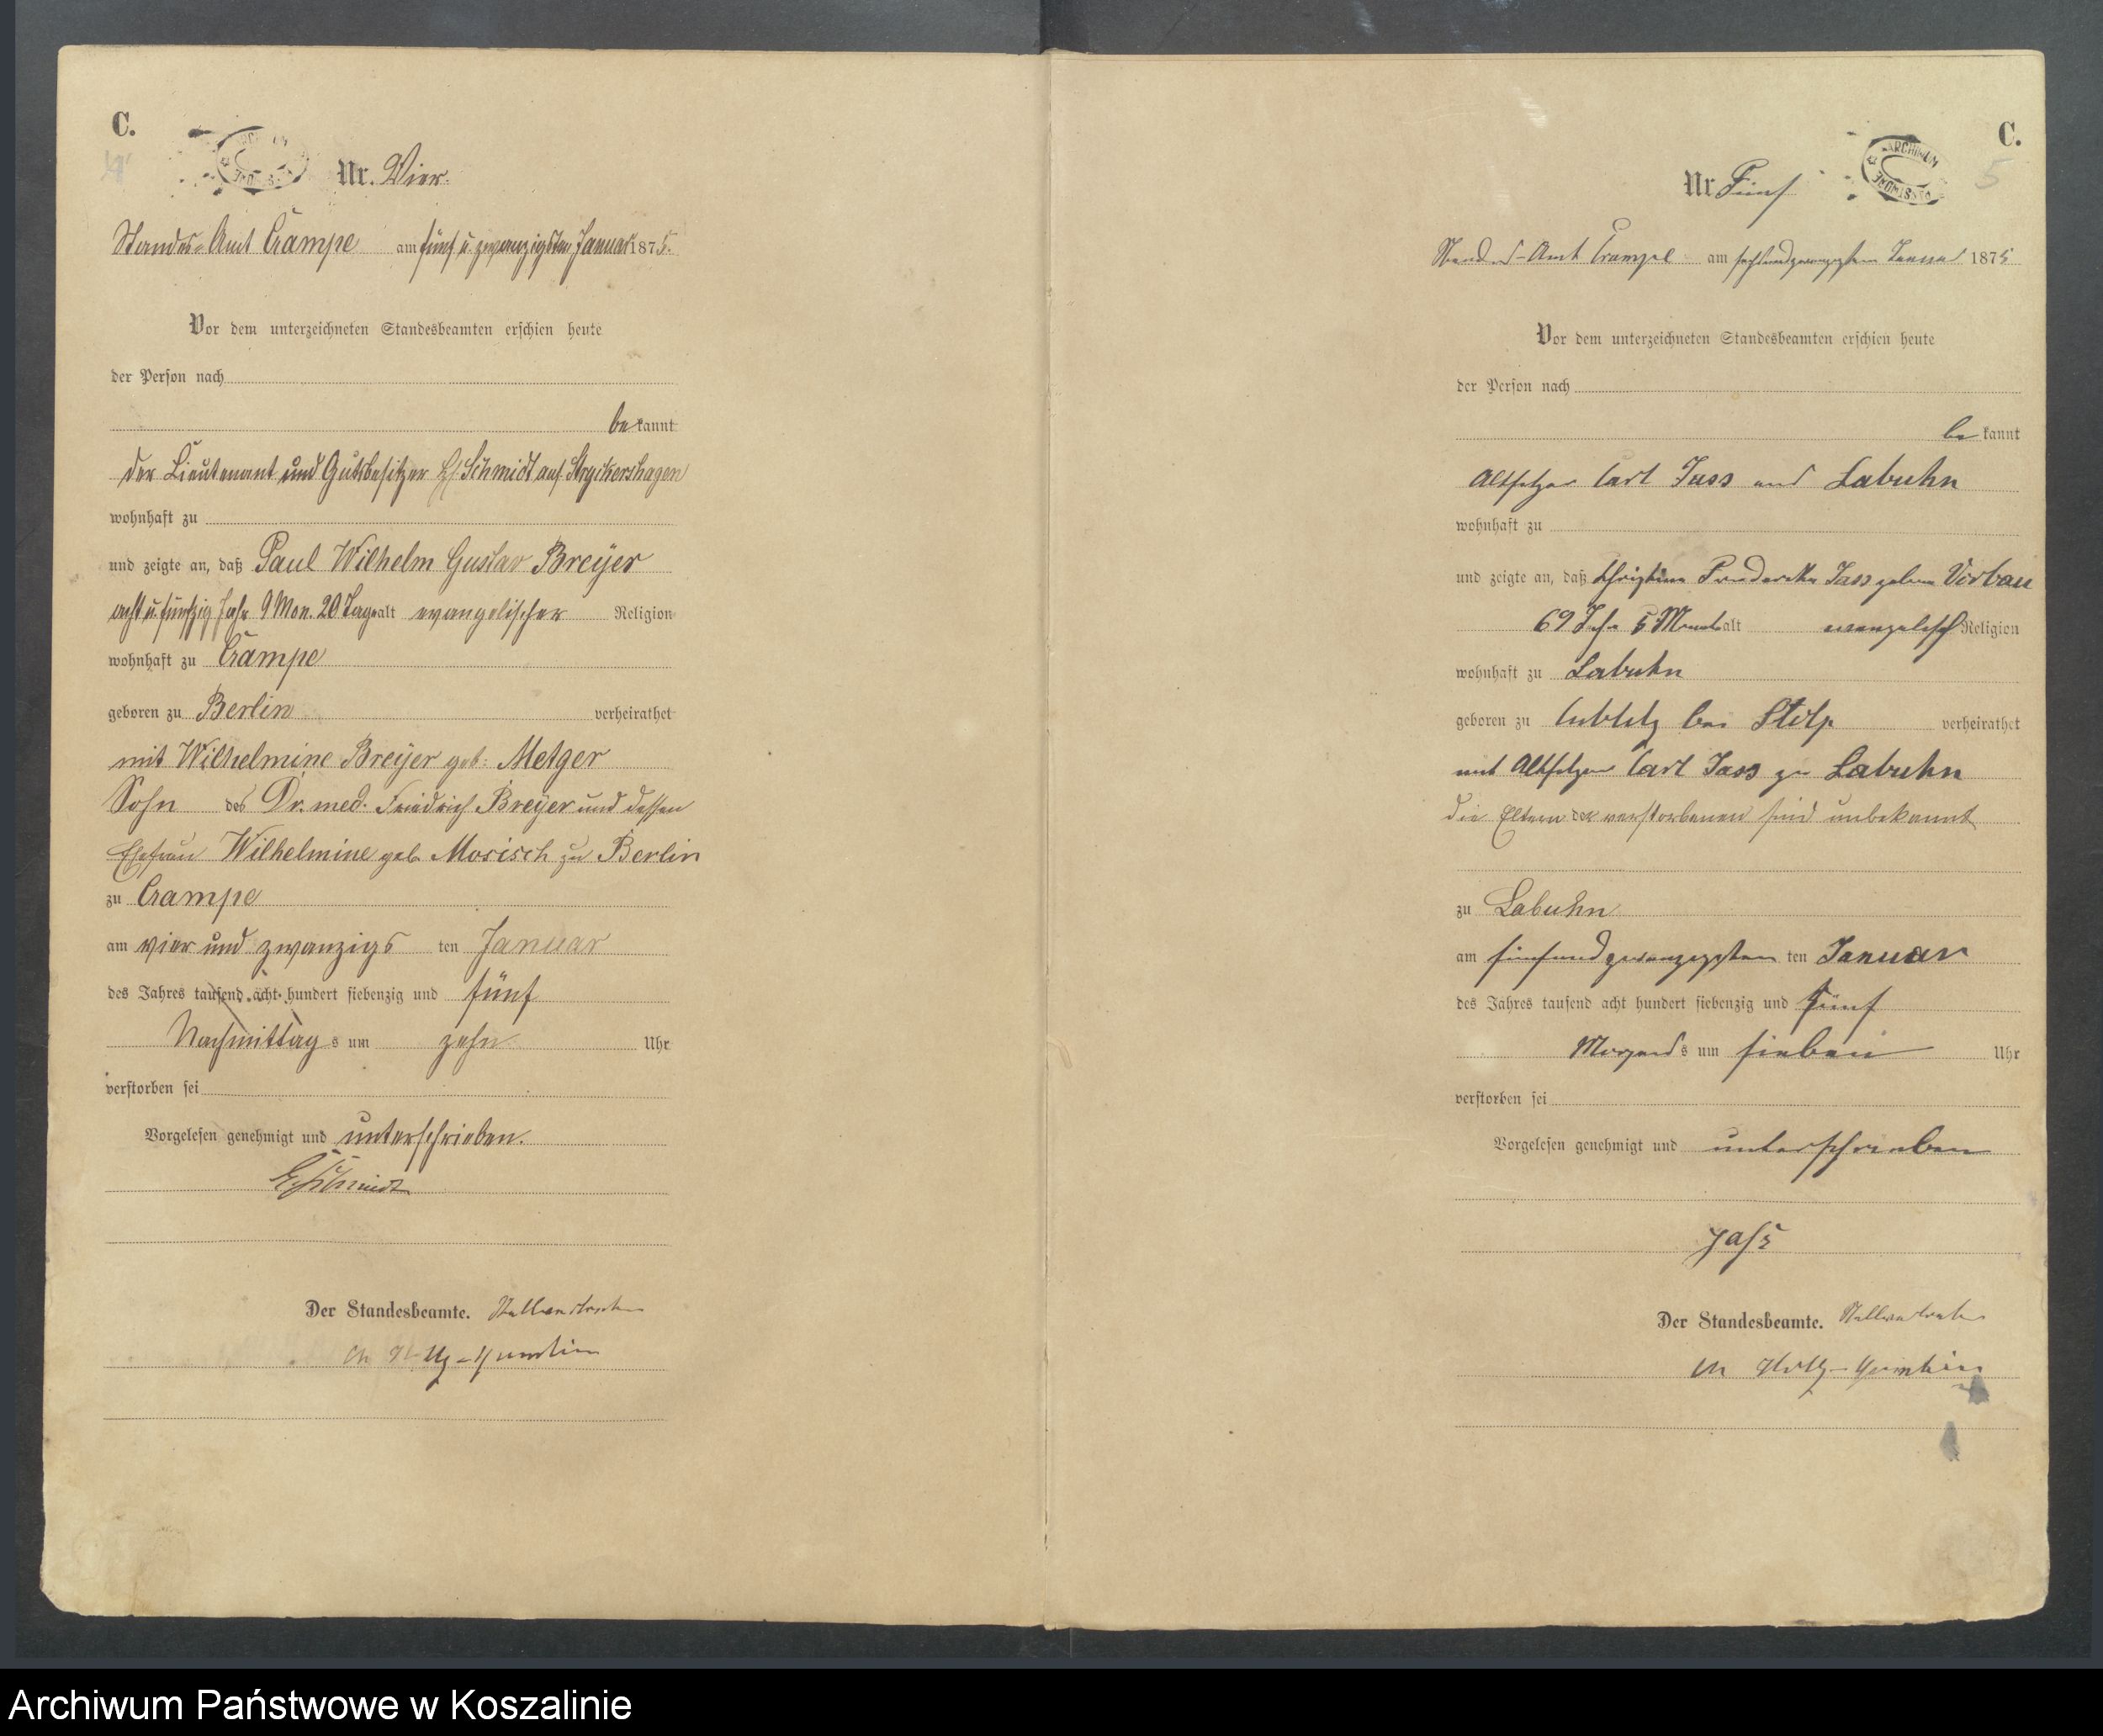 C.
Nr. Vier.
Standes-Amt Crampe am fünf u. zwanzigsten Januar 1875.
Vor dem unterzeichneten Standesbeamten erschien heute
der Person nach
bekannt
der Lieutenant und Gutsbesitzer Schmidt auf Stryckershagen
wohnhaft zu
und zeigte an, daß Paul Wilhelm Gustav Breÿer
acht u. fünfzig Jahr 9 Mon. 20 Tage alt evangelischer Religion
wohnhaft zu Crampe
geboren zu Berlin verheirathet
mit Wilhelmine Breÿer geb: Metger
Sohn des Dr. med. Friedrich Breÿer und dessen
Ehefrau Wilhelmine geb. Mosisch zu Berlin
zu Crampe
am vier und zwanzigs ten Januar
des Jahres tausend acht hundert siebenzig und fünf
Nachmittag s um zehn Uhr
verstorben sei
Vorgelesen genehmigt und unterschrieben.
Schmidt
Der Standesbeamte. Stellvertreter
C.
5
Nr. Fünf
ARCHIWUM
Standes-Amt Crampe am sechsundzwanzigsten Januar 1875
Vor dem unterzeichneten Standesbeamten erschien heute
der Person nach
bekannt
Altsitzer Carl Jass aus Labuhn
wohnhaft zu
und zeigte an, daß Christine Friederike Jass geborne Virbau
69 Jahr 5 Monate alt evangelisch Religion
wohnhaft zu Labuhn
geboren zu Lublitz bei Stolp verheirathet
mit Altsitzer Carl Jass zu Labuhn
die Eltern der verstorbenen sind unbekannt
zu Labuhn
am fünfundzwanzigsten ten Januar
des Jahres tausend acht hundert siebenzig und fünf
Morgends um sieben Uhr
verstorben sei
Vorgelesen genehmigt und unterschrieben
Jass
Der Standesbeamte. Stellvertreter
Archiwum Państwowe w Koszalinie